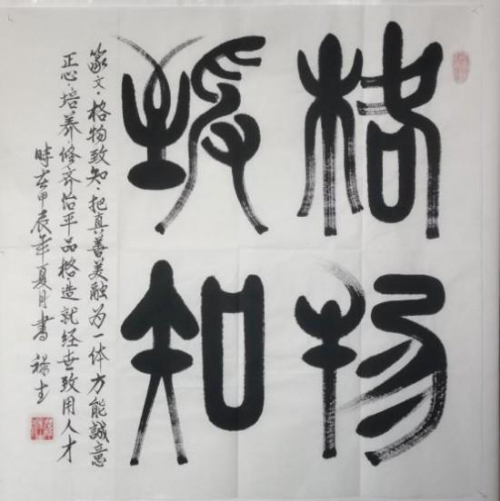 格物
致知
篆文·格物致知·把真善美融为一体方能誠意
正心·培养修齐治平品格造就经世致用人才
時在甲辰年夏月書 禄生